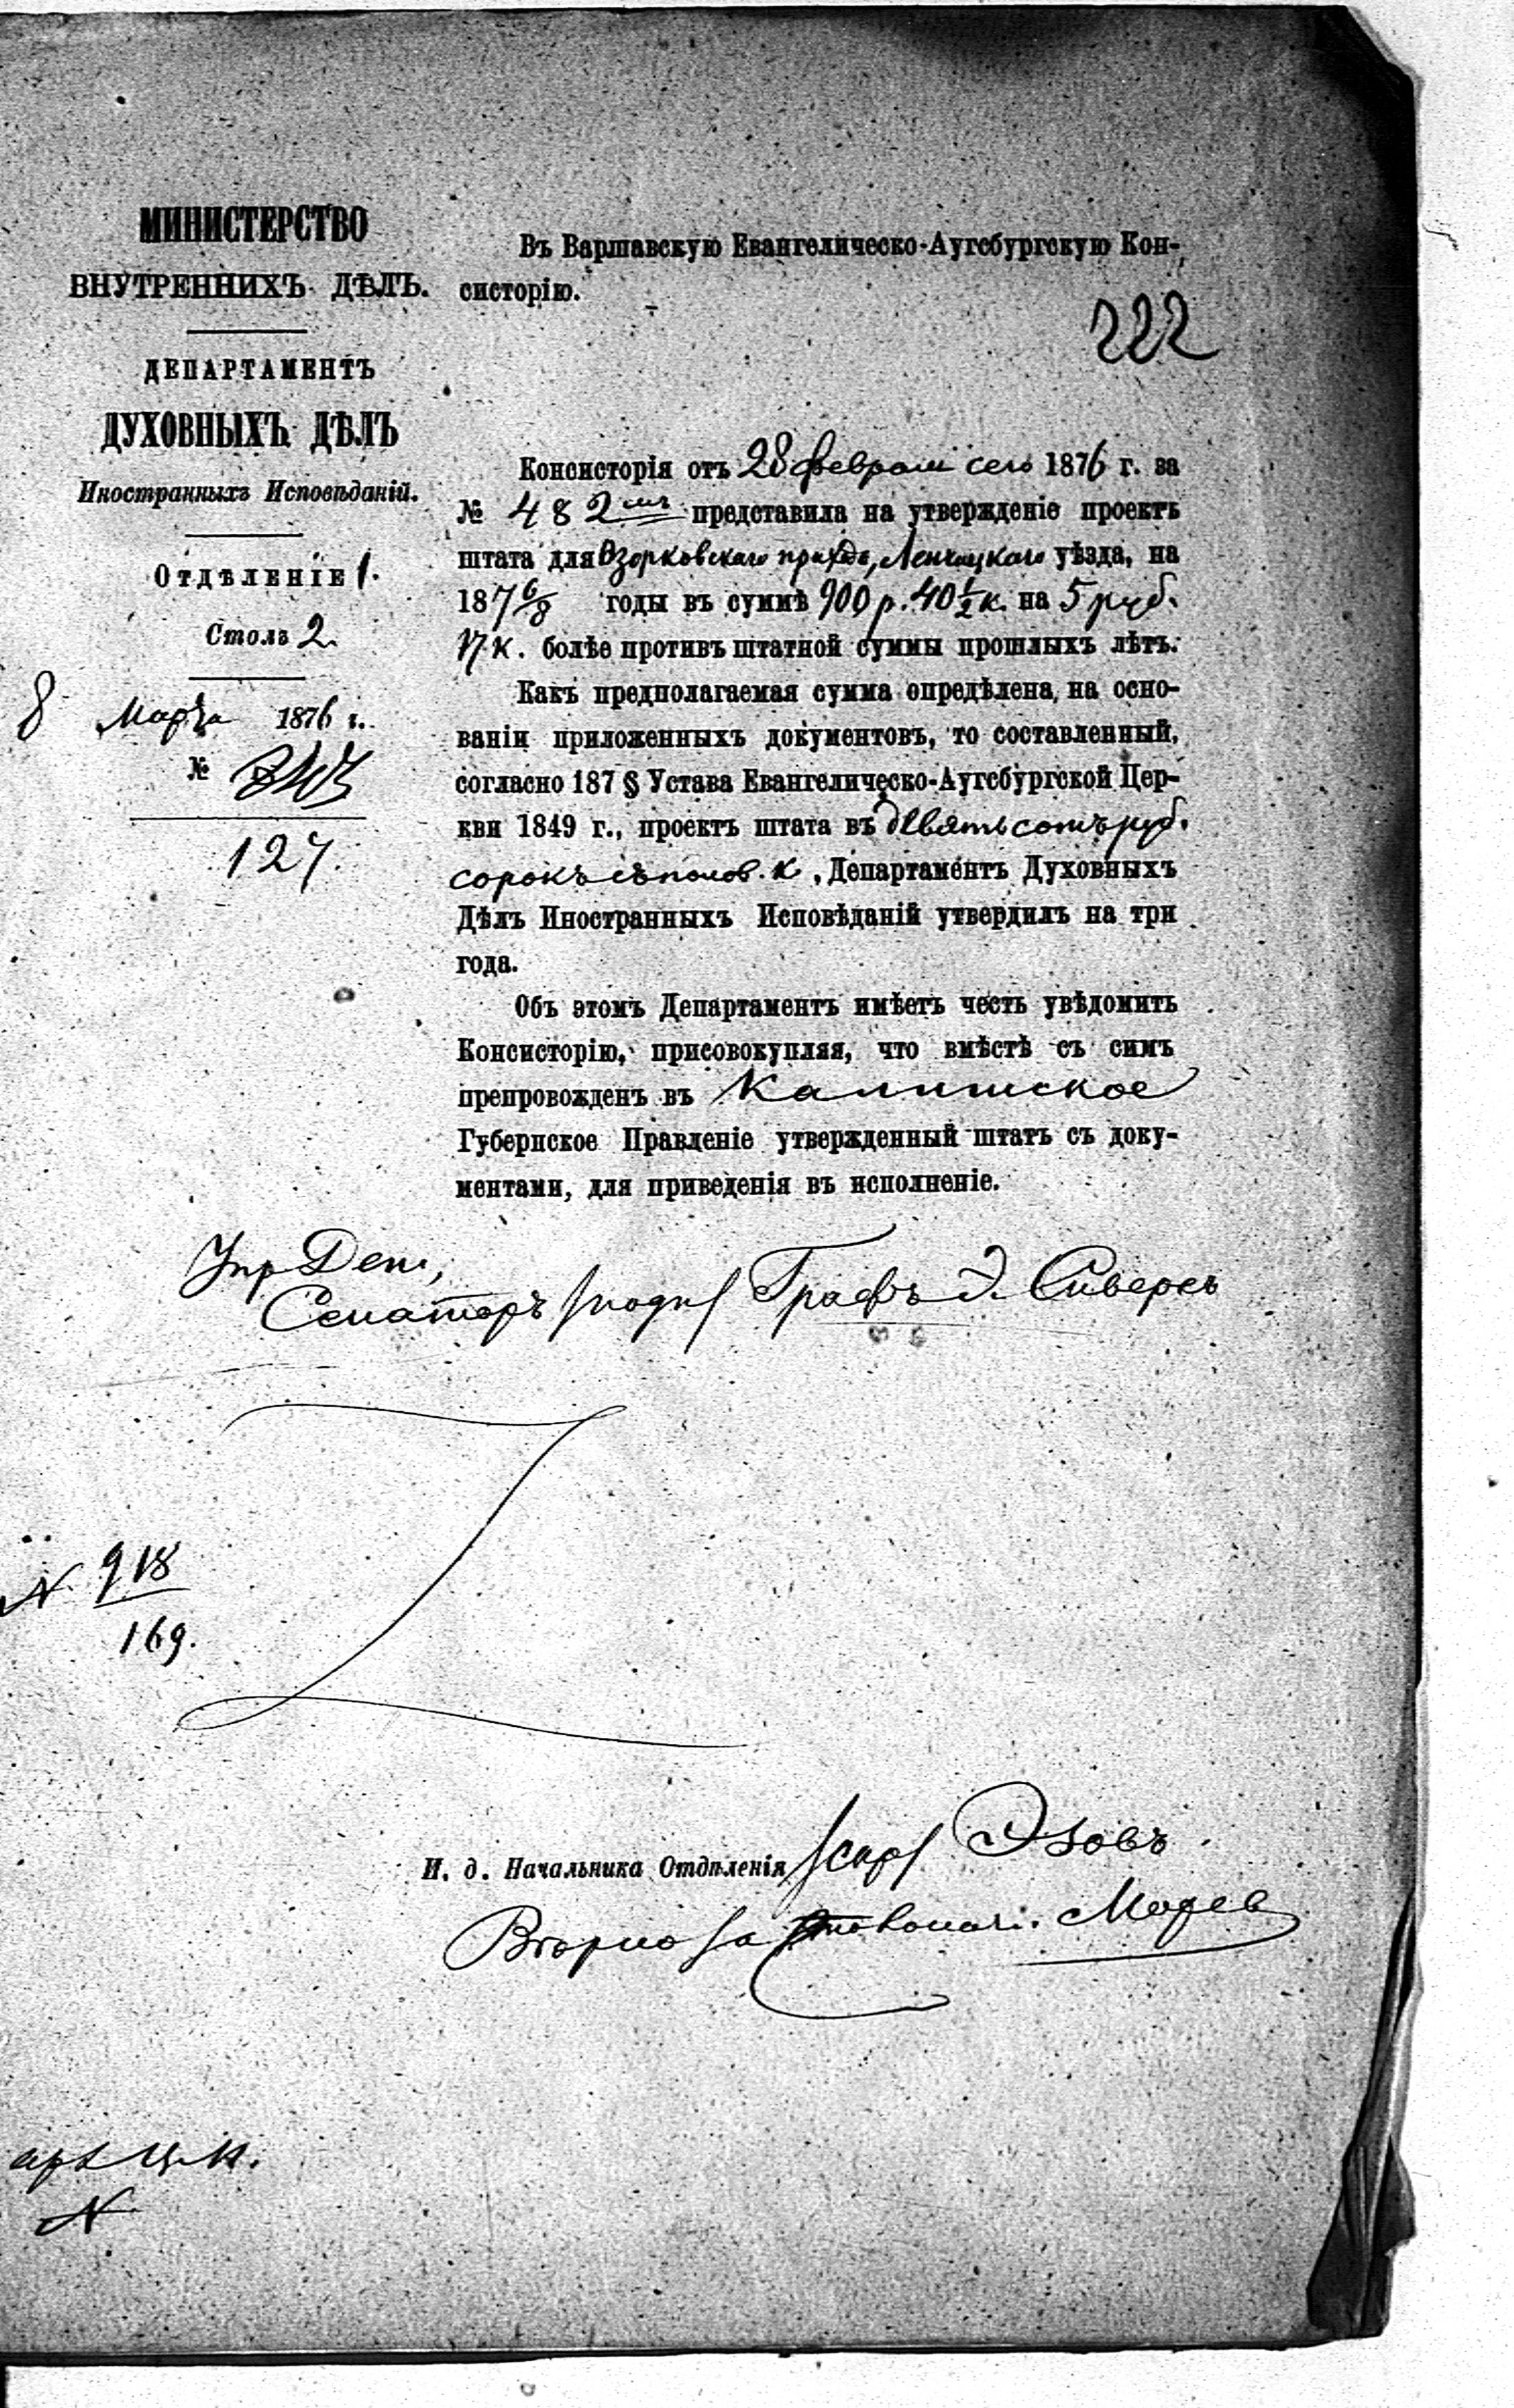 МИНИСТЕРСТВО
ВНУТРЕННИХЪ ДѢЛЪ.
ДЕПАРТАМЕНТЪ
ДУХОВНЫХЪ ДѢЛЪ
Иностранныхъ Исповѣданій.
Отдѣленіе 1.
Столъ 2.
8 Марта 1876 г.
№
127.
Въ Варшавскую Евангелическо-Аугсбургскую Кон-
систорію.
222
Консисторія отъ 28 февраля сего 1876 г. за
№ 482 представила на утвержденіе проектъ
штата для Озорковскаго прихода, Ленчицкаго уѣзда, на
187 6/8 годы въ суммѣ 900 р. 40 1/2 к. на 5 руб.
17 к. болѣе противъ штатной суммы прошлыхъ лѣтъ.
Какъ предполагаемая сумма опредѣлена, на осно-
ваніи приложенныхъ документовъ, то составленный,
согласно 187 § Устава Евангелическо-Аугсбургской Цер-
кви 1849 г., проектъ штата въ девятьсотъ руб.
сорокъ съ полов. к., Департаментъ Духовныхъ
Дѣлъ Иностранныхъ Исповѣданій утвердилъ на три
года.
Объ этомъ Департаментъ имѣетъ честь увѣдомить
Консисторію, присовокупляя, что вмѣстѣ съ симъ
препровожденъ въ Калишское
Губернское Правленіе утвержденный штатъ съ доку-
ментами, для приведенія въ исполненіе.
Упр Деп.,
Сенаторъ /подп/ Графъ Э. Сиверсъ
N. 918
169.
И. д. Начальника Отдѣленія /скр/ Эзовъ
Вѣрно за
N